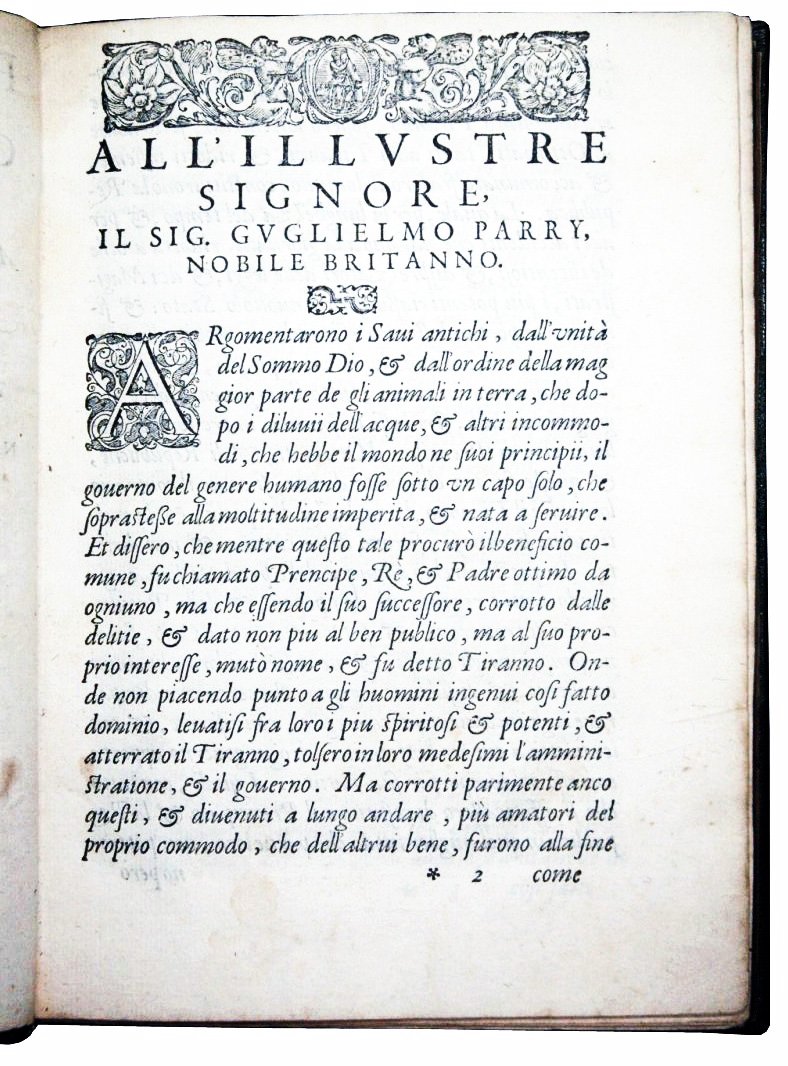 ALL'ILLVSTRE
SIGNORE,
IL SIG. GVGLIELMO PARRY,
NOBILE BRITANNO.
ARgomentarono i Saui antichi, dall'vnità
del Sommo Dio, & dall'ordine della mag
gior parte de gli animali in terra, che do-
po i diluuii dell'acque, & altri incommo-
di, che hebbe il mondo ne ſuoi principii, il
gouerno del genere humano foſſe ſotto vn capo ſolo, che
ſopraſteſſe alla moltitudine imperita, & nata a ſeruire.
Et diſſero, che mentre queſto tale procurò il beneficio co-
mune, fu chiamato Prencipe, Rè, & Padre ottimo da
ogniuno, ma che eſſendo il ſuo ſucceſſore, corrotto dalle
delitie, & dato non piu al ben publico, ma al ſuo pro-
prio intereſſe, mutò nome, & fu detto Tiranno. On-
de non piacendo punto a gli huomini ingenui coſi fatto
dominio, leuatiſi fra loro i piu ſpiritoſi & potenti, &
atterrato il Tiranno, tolſero in loro medeſimi l'ammini-
ſtratione, & il gouerno. Ma corrotti parimente anco
queſti, & diuenuti a lungo andare, più amatori del
proprio commodo, che dell'altrui bene, furono alla fine
* 2 come